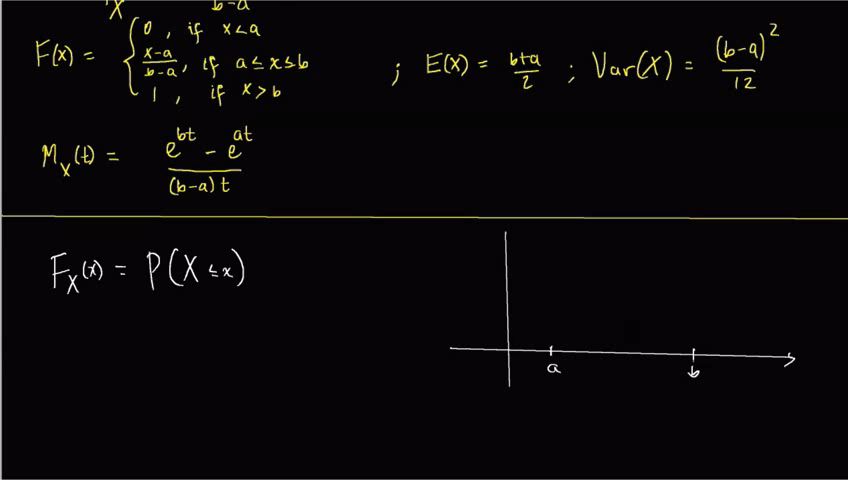 X b-a
F(x) = { 0, if x<a
x-a/b-a, if a≤x≤b
1, if x>b
; E(X) = b+a/2 ; Var(X) = (b-a)²/12
M_X(t) = e^bt - e^at / (b-a)t
F_X(x) = P(X≤x)
a b